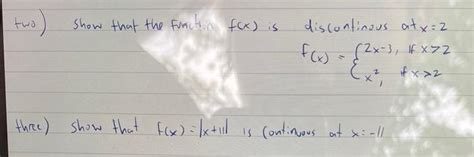 two) Show that the function f(x) is discontinous at x=2
f(x) = { 2x-3, if x>2
x², if x>2
three) Show that f(x)=|x+11| is continuous at x=-11